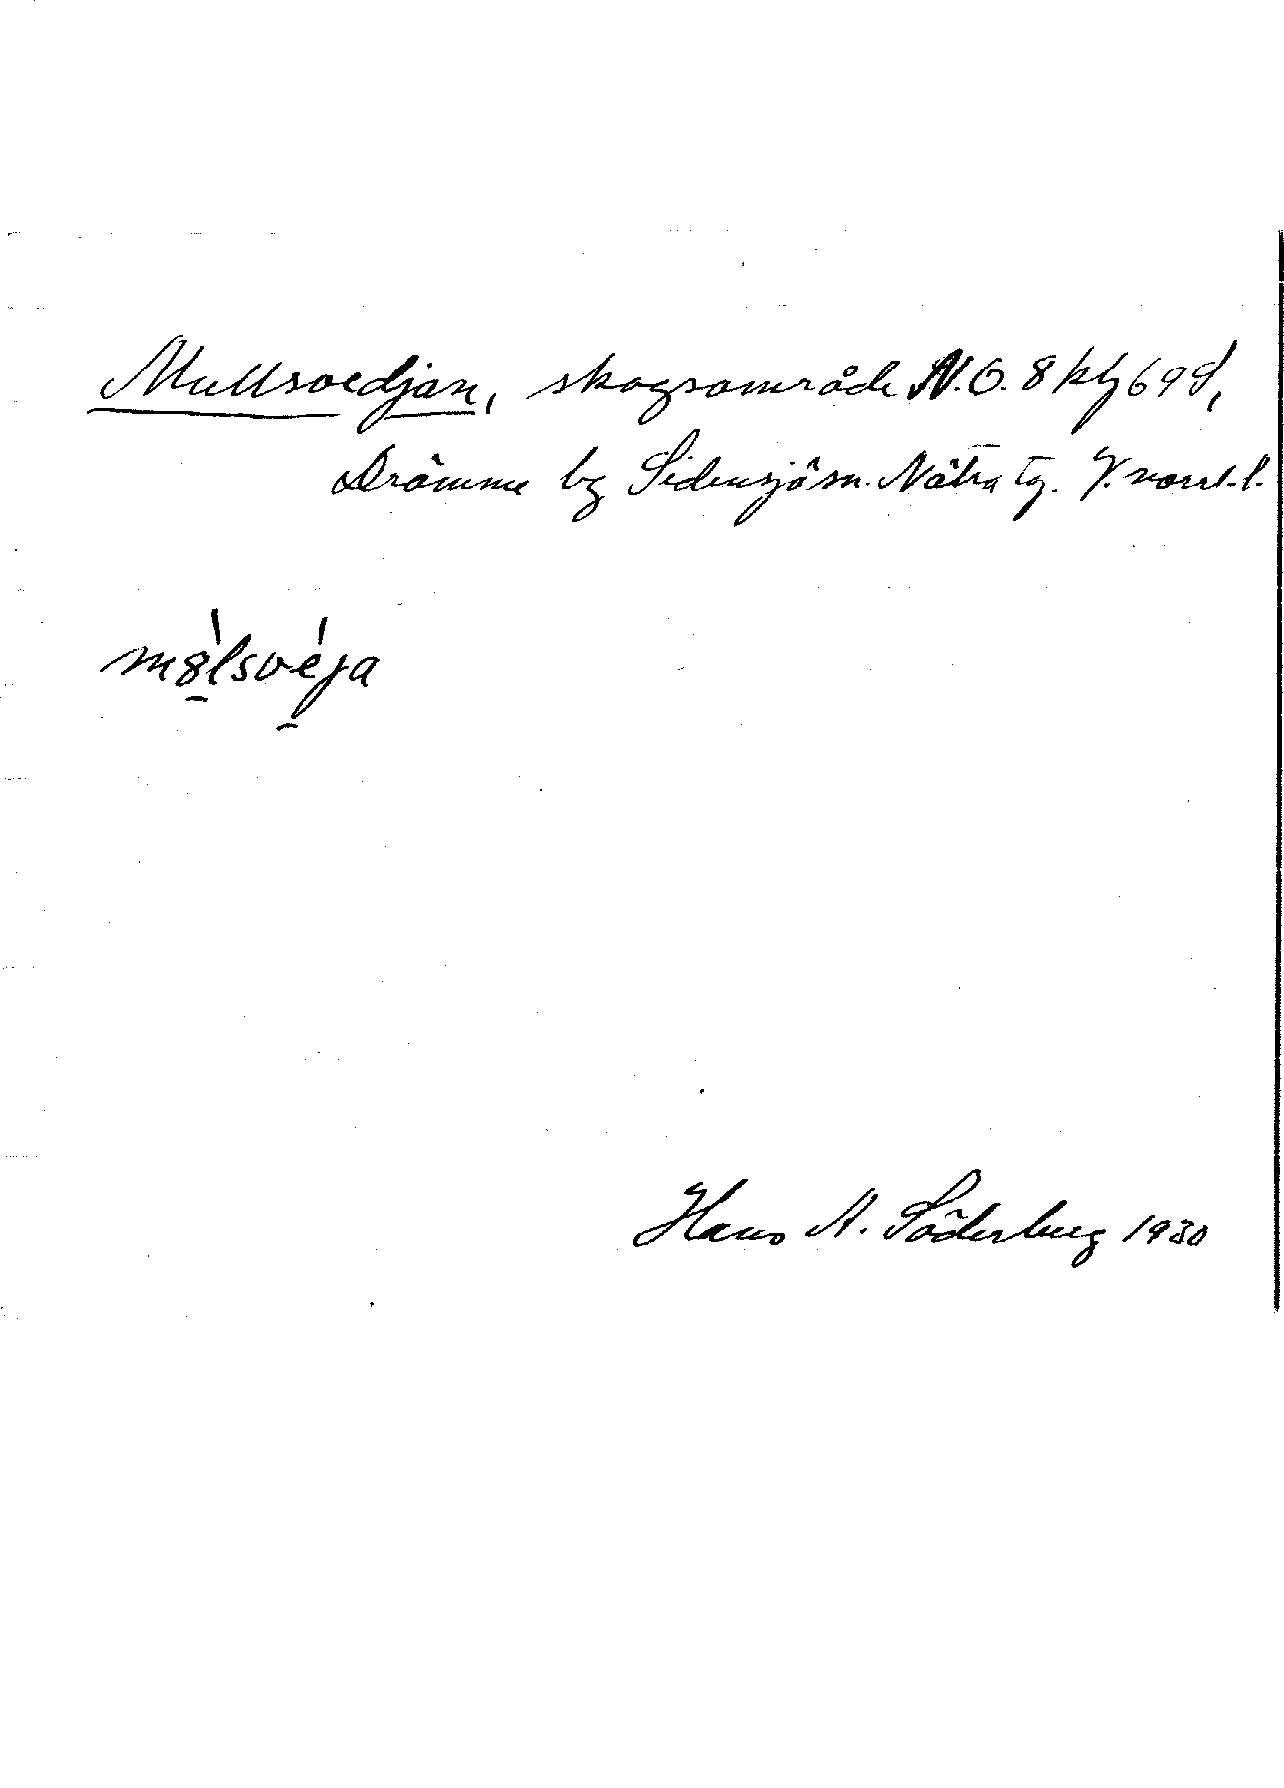 Mullsvedjan, skogsområde N.O. 8 kbf 69 d,
Drömme by Sidensjö sn. Nätra tg. Y. norrl. l.
målsveja
Hans A. Söderberg 1930